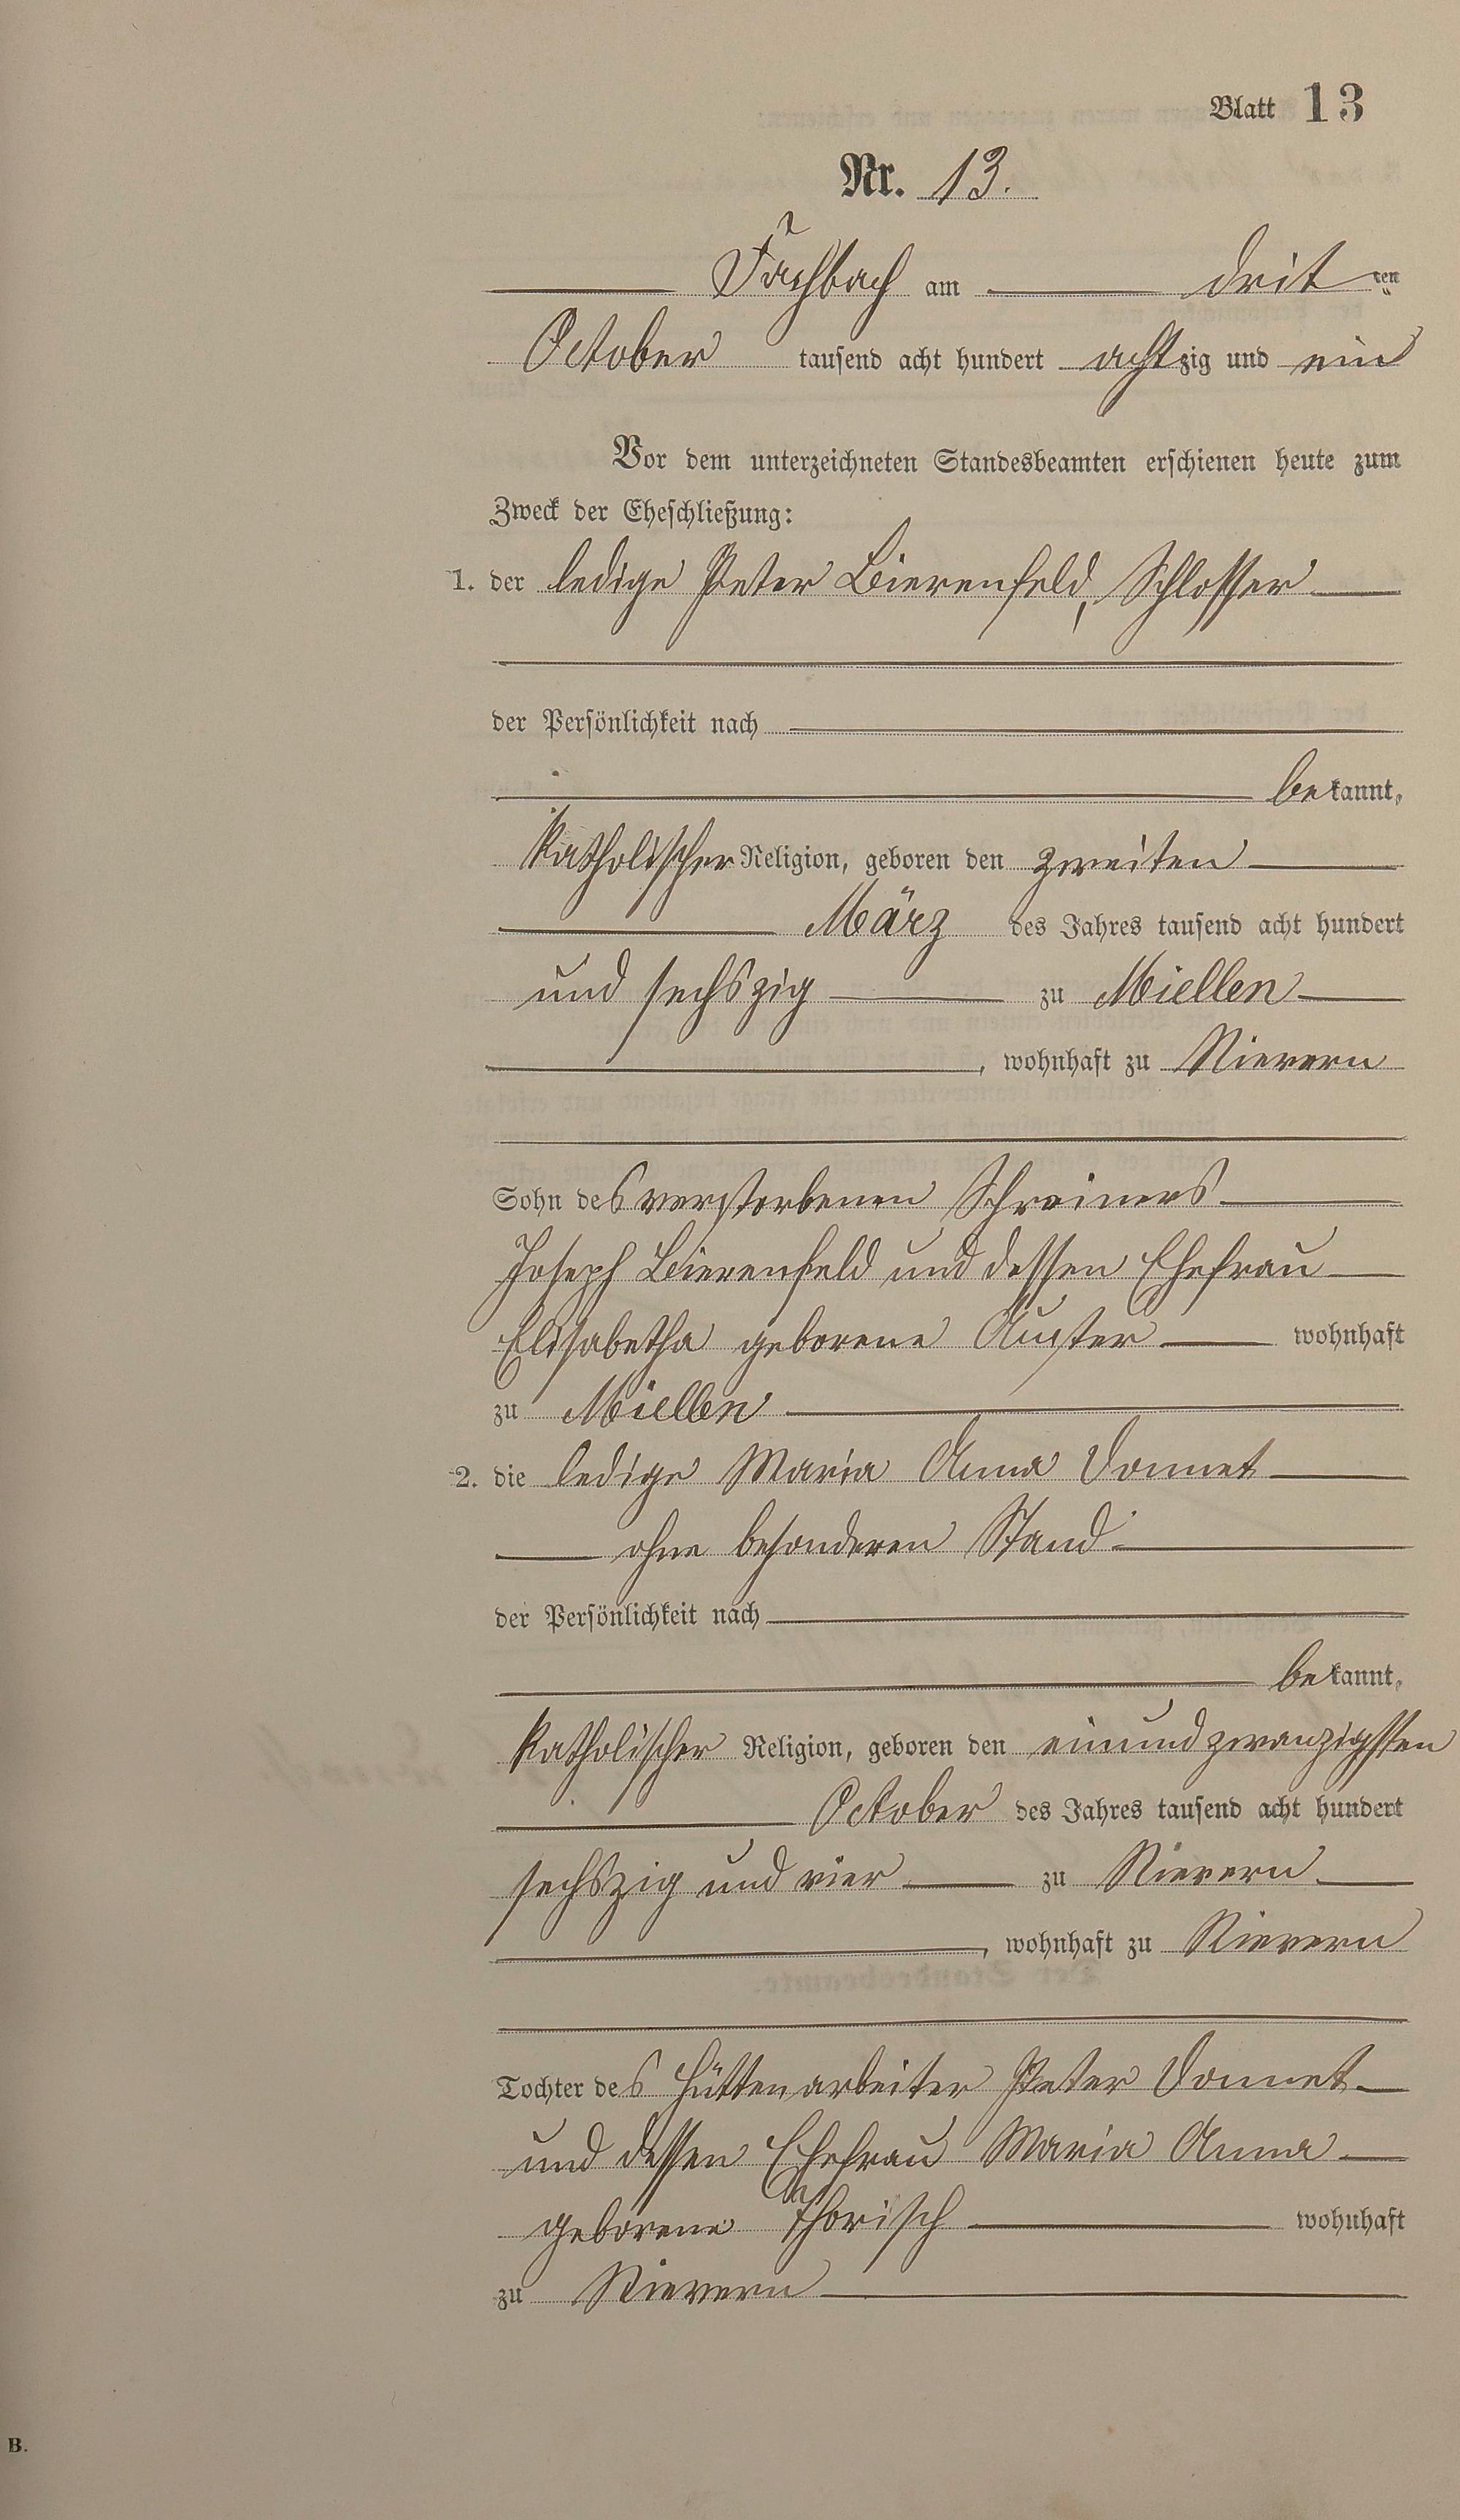 Blatt 13
Nr. 13.
Fachbach am drit ten
October tausend acht hundert achtzig und ein
Vor dem unterzeichneten Standesbeamten erschienen heute zum
Zweck der Eheschließung:
1. der ledige Peter Bierenfeld, Schlosser
der Persönlichkeit nach
bekannt,
katholischer Religion, geboren den zweiten
März des Jahres tausend acht hundert
und sechszig zu Miellen
, wohnhaft zu Nievern
Sohn des verstorbenen Schreiners
Joseph Bierenfeld und dessen Ehefrau
Elisabetha geborene wohnhaft
zu Miellen
2. die ledige Maria Anna Donnet
ohne besonderen Stand
der Persönlichkeit nach
bekannt,
katholischer Religion, geboren den einundzwanzigsten
October des Jahres tausend acht hundert
sechszig und vier zu Nievern
, wohnhaft zu Nievern
Tochter des Hüttenarbeiter Peter Donnet
und dessen Ehefrau Maria Anna
geborene Thorisch wohnhaft
zu Nievern
B.